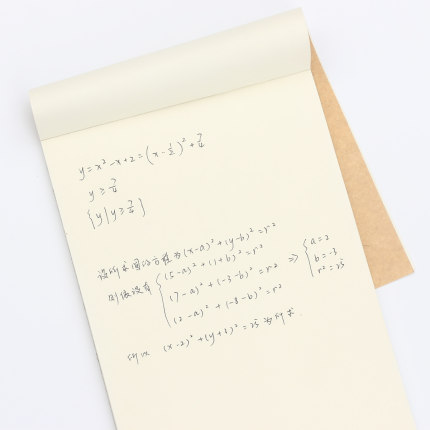 y=x²-x+2=(x-1/2)²+7/4
y≥7/4
{y|y≥7/4}
设所求圆的方程为(x-a)²+(y-b)²=r²
则依设有{(5-a)²+(1-b)²=r²
(7-a)²+(-3-b)²=r² => {a=2
(2-a)²+(-8-b)²=r² b=-3
r²=25
所以 (x-2)²+(y+3)²=25为所求.